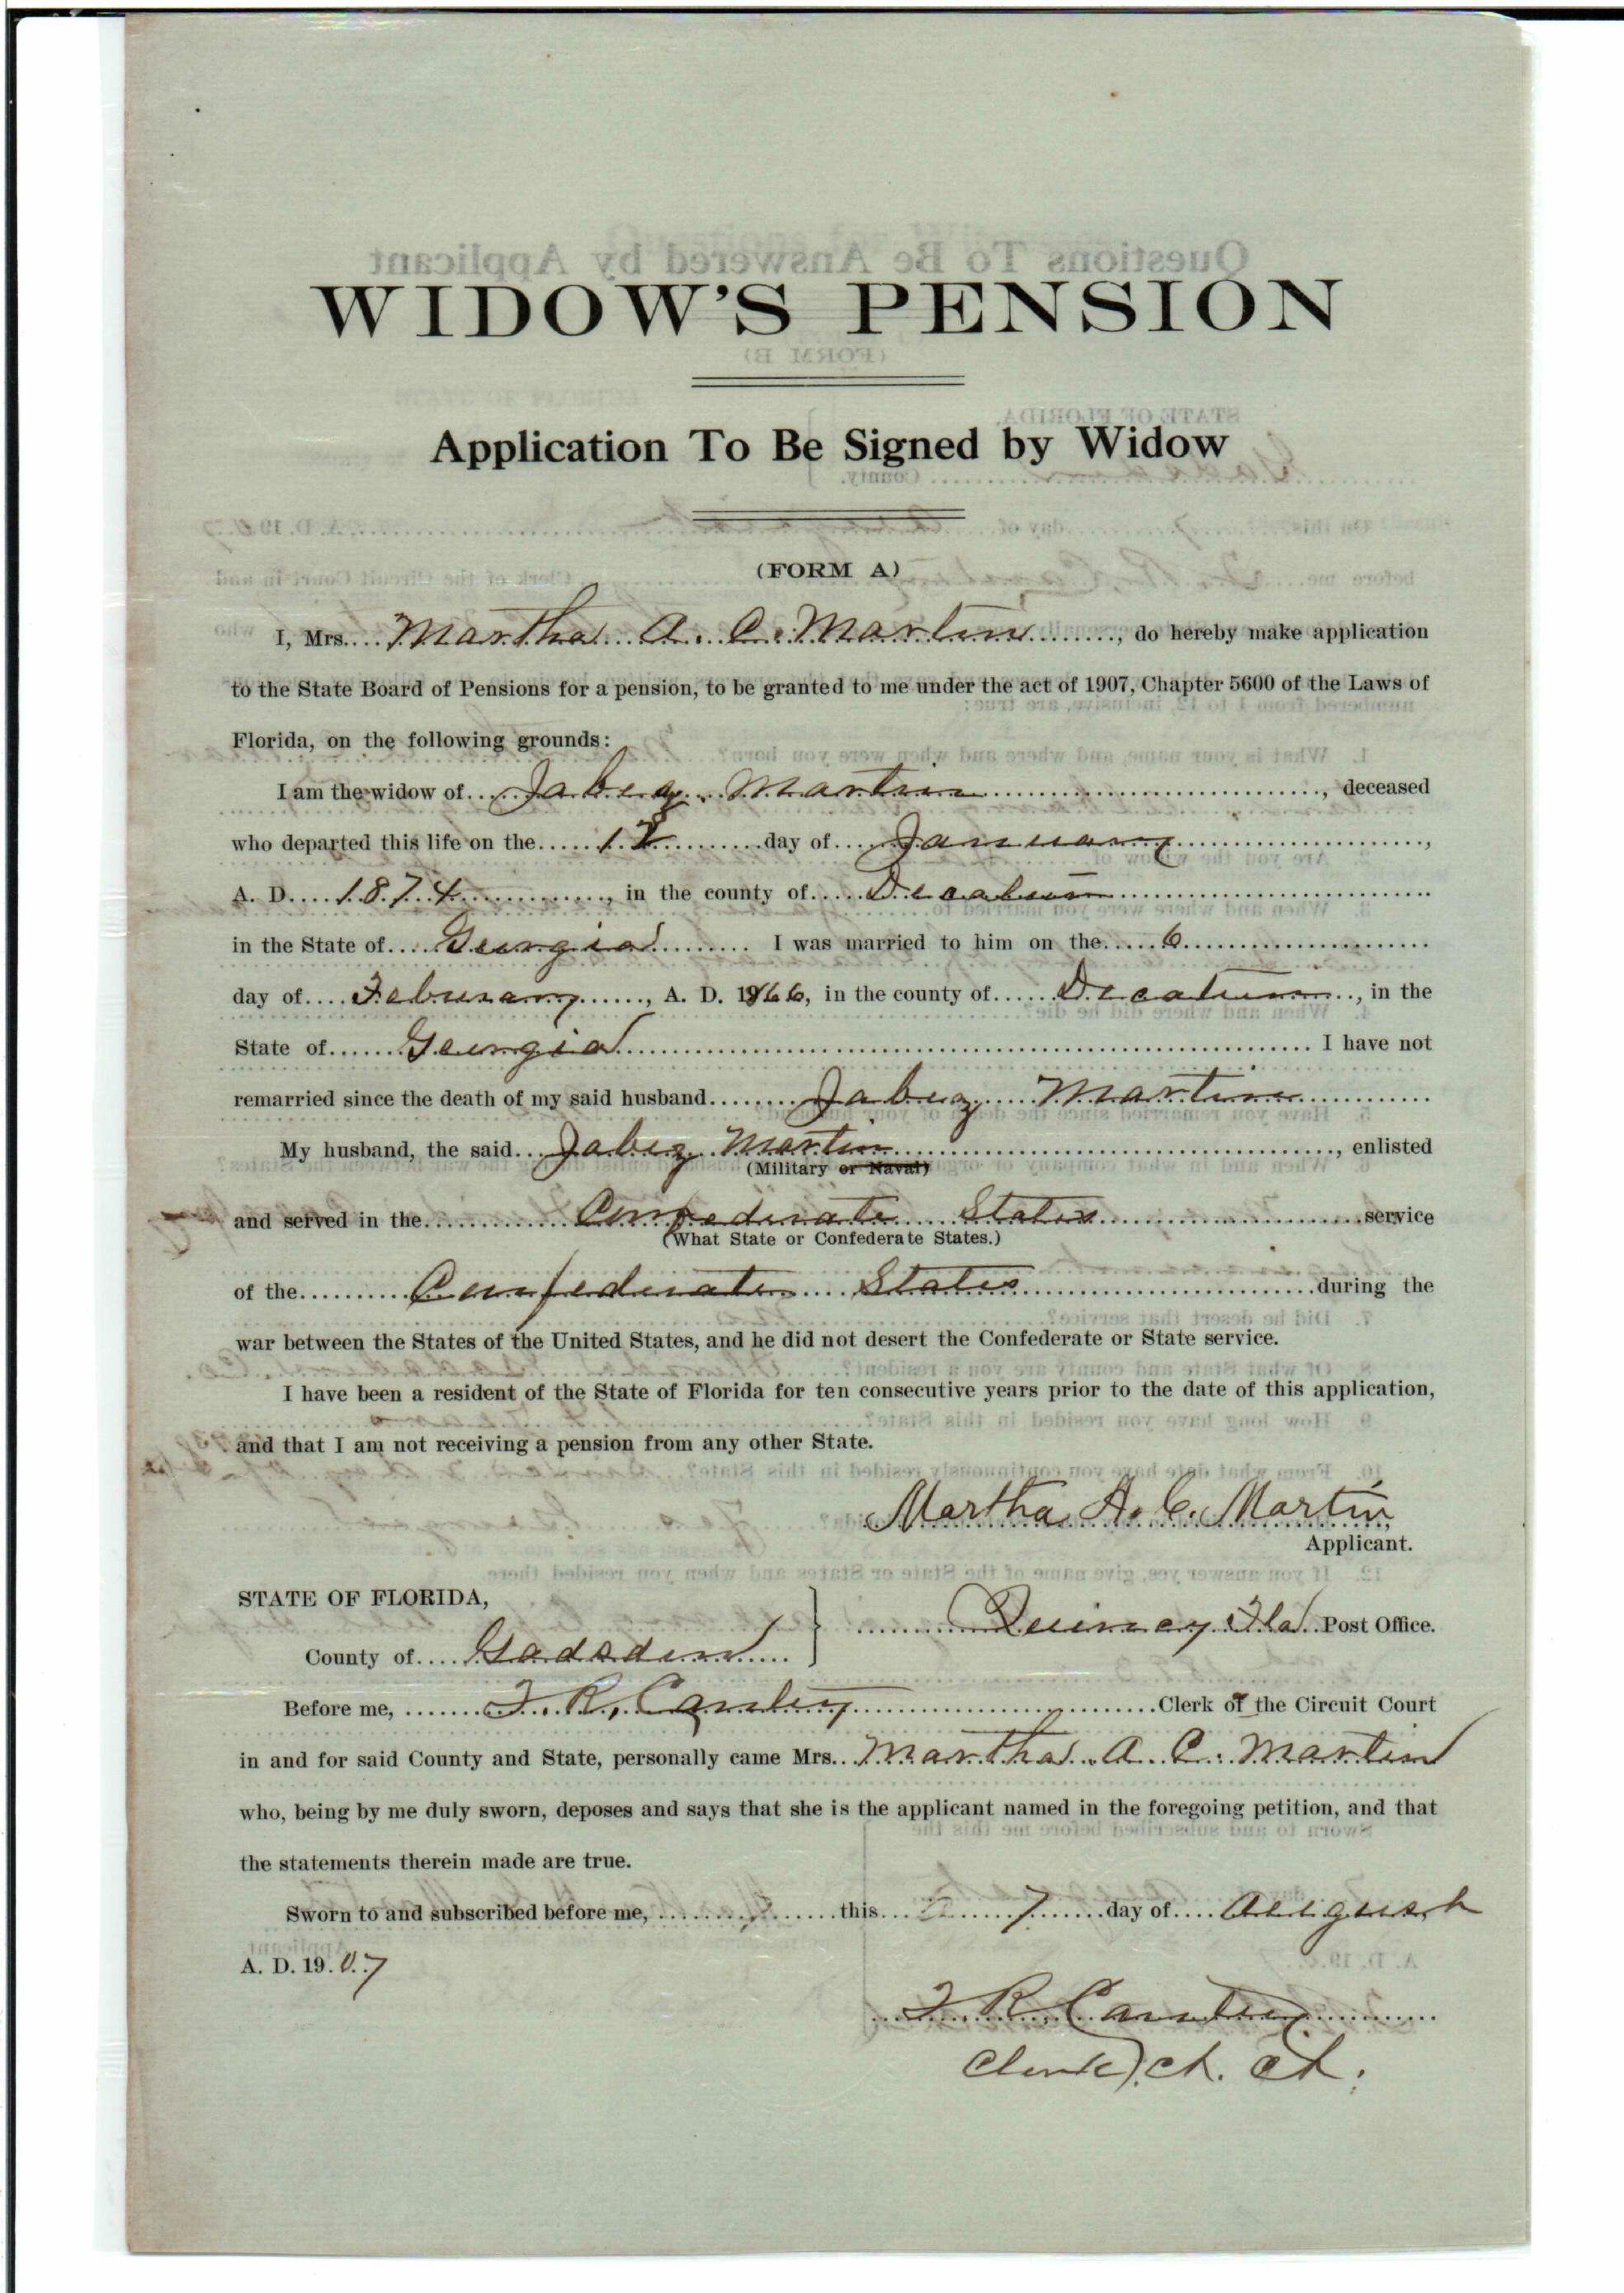 WIDOW'S PENSION
Application To Be Signed by Widow
(FORM A)
I, Mrs. Martha A. C. Martin, do hereby make application
to the State Board of Pensions for a pension, to be granted to me under the act of 1907, Chapter 5600 of the Laws of
Florida, on the following grounds:
I am the widow of Jabez Martin, deceased
who departed this life on the 12 day of January,
A. D. 1874, in the county of Decatur
in the State of Georgia I was married to him on the 6
day of Feburary, A. D. 1866, in the county of Decatur, in the
State of Georgia I have not
remarried since the death of my said husband Jabez Martin
My husband, the said Jabez Martin, enlisted
(Military or Naval)
and served in the Confederate States service
(What State or Confederate States.)
of the Confederate States during the
war between the States of the United States, and he did not desert the Confederate or State service.
I have been a resident of the State of Florida for ten consecutive years prior to the date of this application,
and that I am not receiving a pension from any other State.
Martha A. C. Martin
Applicant.
STATE OF FLORIDA,
Quincy Fla Post Office.
County of Gadsden
Before me, Clerk of the Circuit Court
in and for said County and State, personally came Mrs. Martha A. C. Martin
who, being by me duly sworn, deposes and says that she is the applicant named in the foregoing petition, and that
the statements therein made are true.
Sworn to and subscribed before me, this 7 day of August
A. D. 1907
Clerk Ct. Ct.